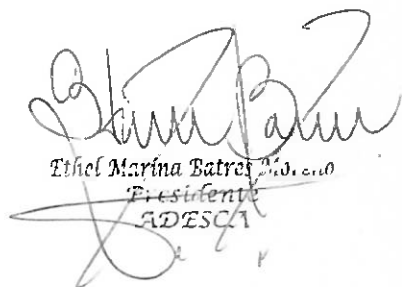 Ethel Marina Batres Moreno
Presidente
ADESCA